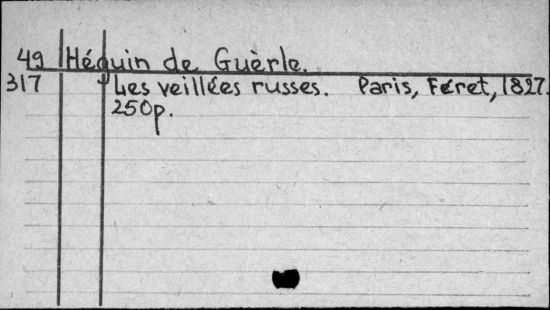 49 Héguin de Guèrle.
317 Les veillées russes. Paris, Féret, 1827.
250p.